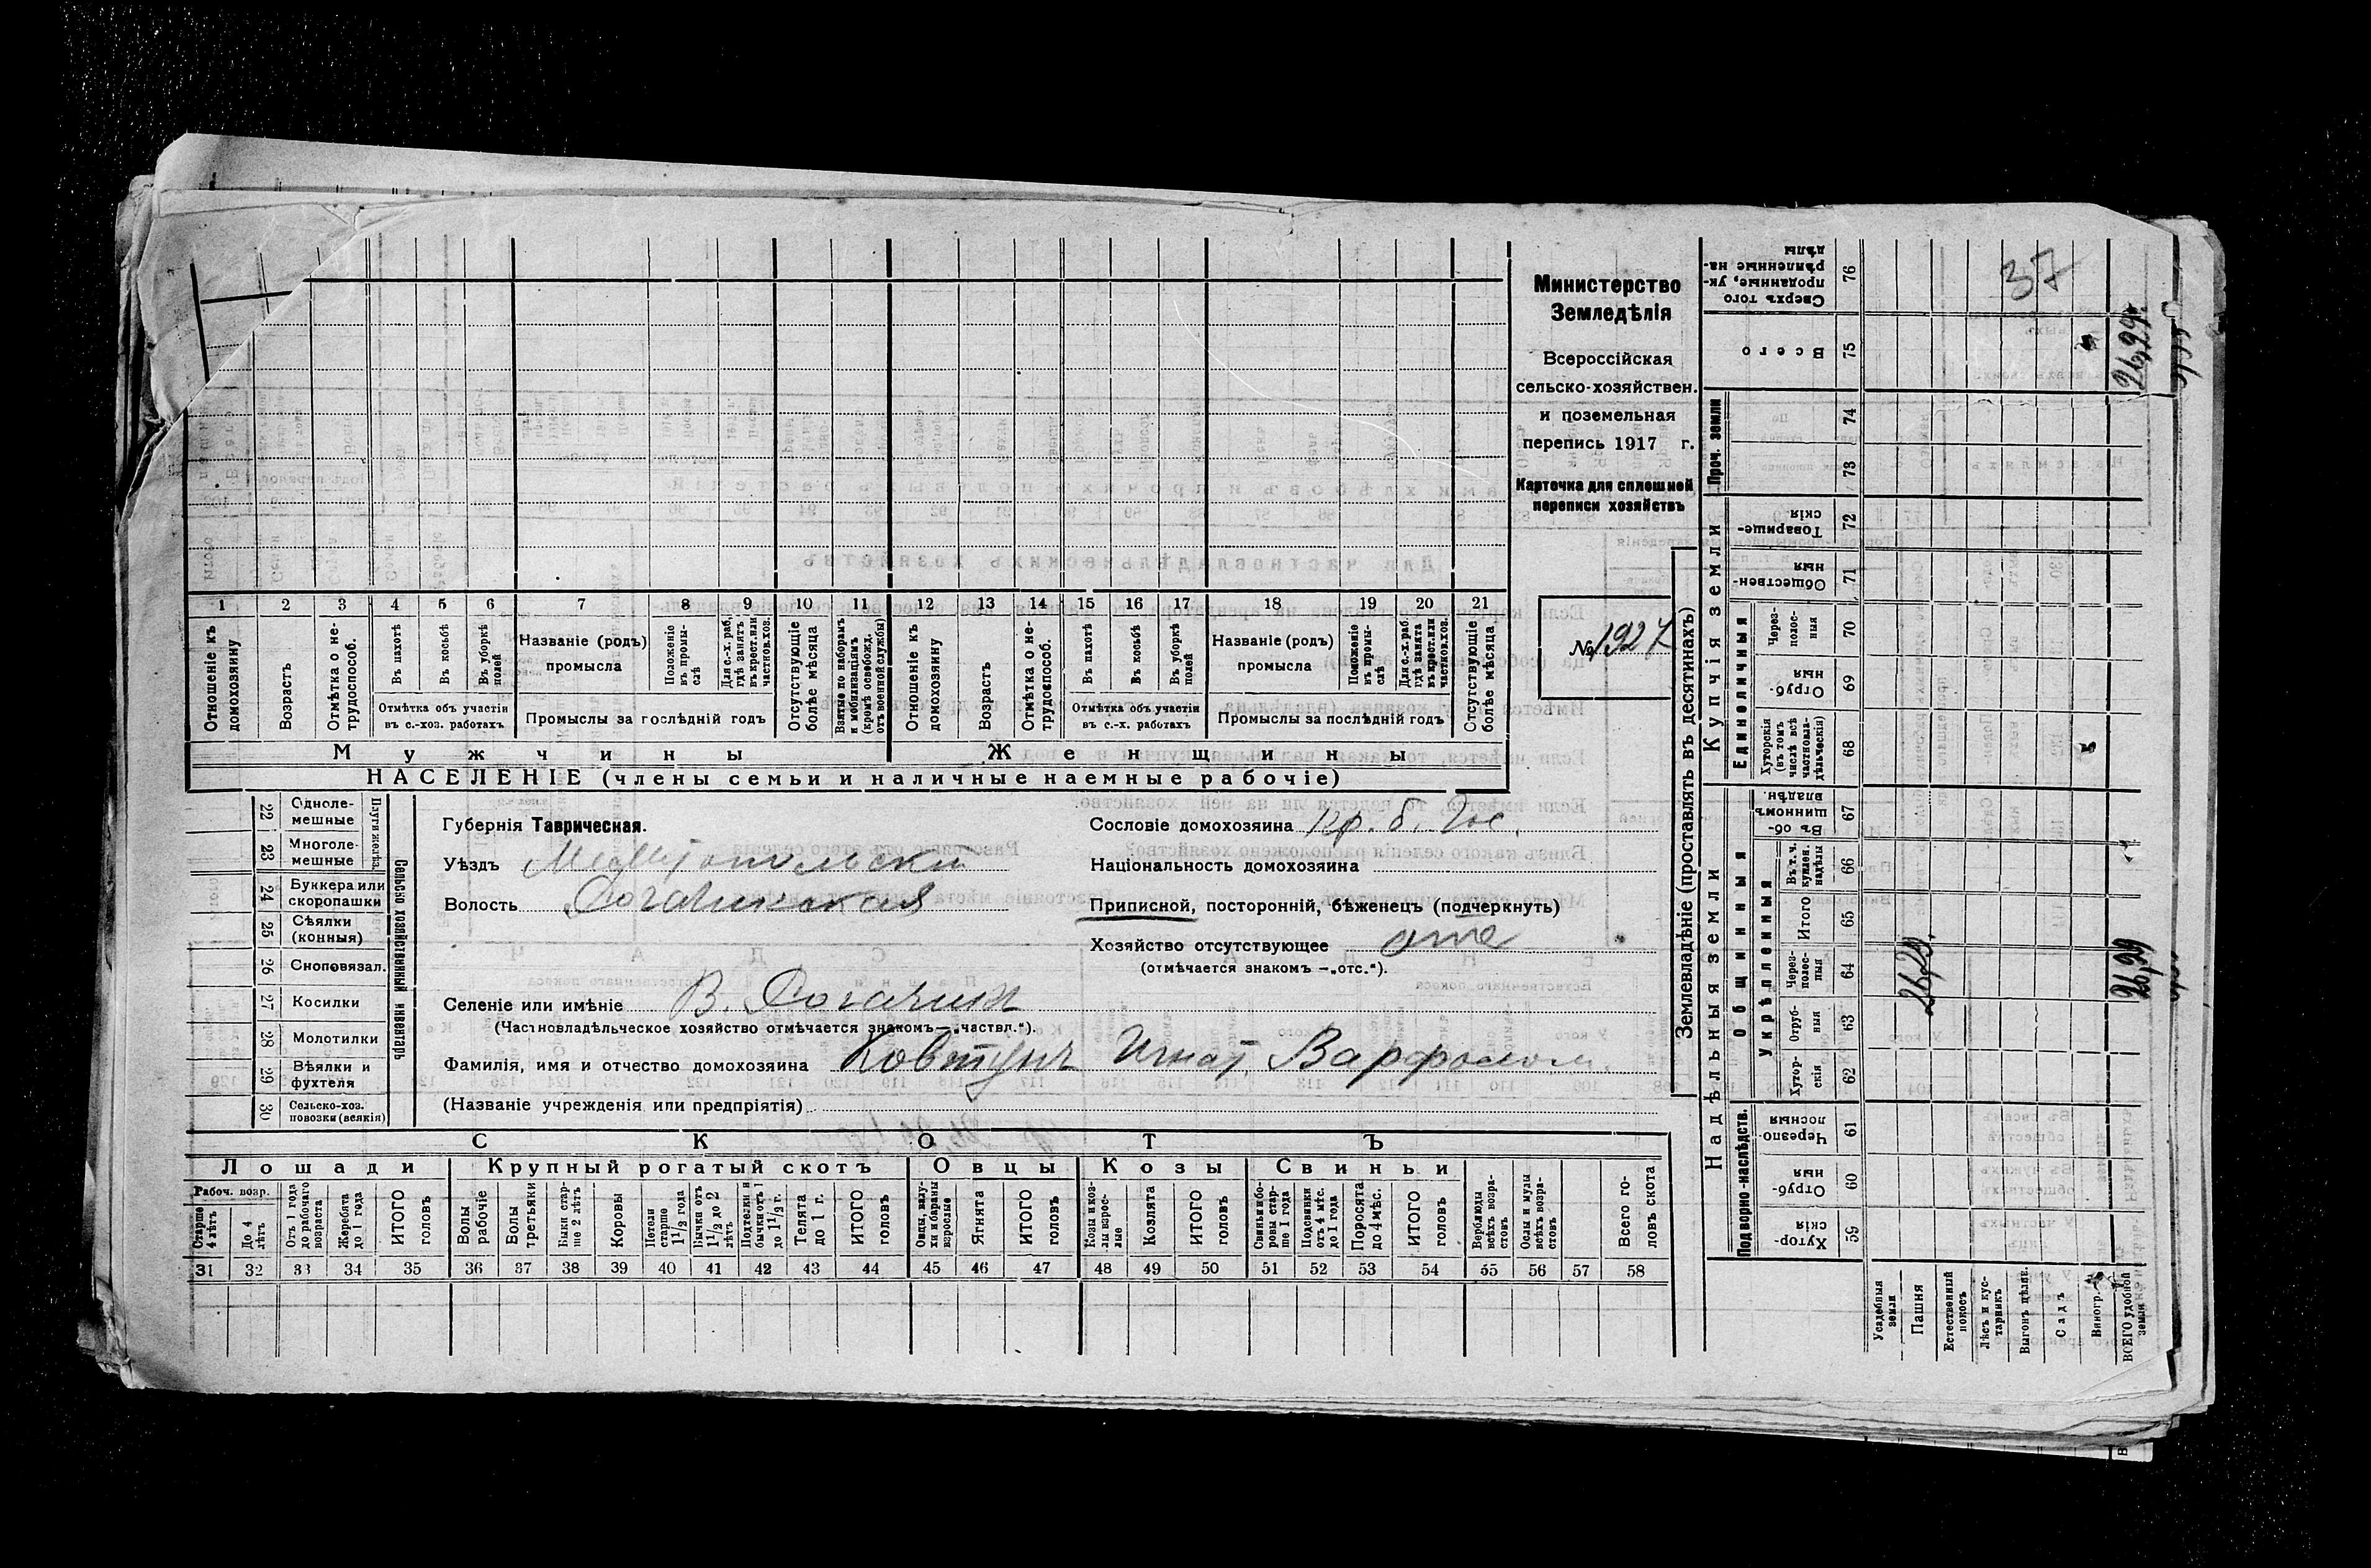 Министерство
Земледѣлія
Всероссійская
сельско-хозяйствен.
и поземельная
перепись 1917 г.
Карточка для сплошной
переписи хозяйствъ
№ 1927
1 2 3 4 5 6 7 8 9 10 11 12 13 14 15 16 17 18 19 20 21
Отношеніе къ домохозяину
Возрастъ
Отмѣтка о не-трудоспособ.
Въ пахотѣ
Въ косьбѣ
Въ уборкѣ полей
Отмѣтка объ участіи въ с.-хоз. работахъ
Названіе (родъ) промысла
Положеніе въ промы-слѣ
Для с.-х. раб. гдѣ занятъ въ крест. или частнов. хоз.
Промыслы за послѣдній годъ
Отсутствующіе болѣе мѣсяца
Взятые по наборамъ и мобилизаціямъ (кромѣ освобожд. отъ военной службы)
Отношеніе къ домохозяину
Возрастъ
Отмѣтка о не-трудоспособ.
Въ пахотѣ
Въ косьбѣ
Въ уборкѣ полей
Отмѣтка объ участіи въ с.-х. работахъ
Названіе (родъ) промысла
Положеніе въ промы-слѣ
Для с.-х. раб. гдѣ занята въ крест. или частнов. хоз.
Промыслы за послѣдній годъ
Отсутствующіе болѣе мѣсяца
Мужчины Женщины
НАСЕЛЕНІЕ (члены семьи и наличные наемные рабочіе)
22 Одноле-мешные
23 Многоле-мешные
Плуги желѣз.
24 Буккера или скоропашки
25 Сѣялки (конныя)
26 Сноповязал.
27 Косилки
28 Молотилки
29 Вѣялки и фухтеля
30 Сельско-хоз. повозки (всякія)
Сельско хозяйственный инвентарь
Губернія Таврическая.
Уѣздъ Мелитопольски
Волость Рогачикская
Селеніе или имѣніе В. Рогачик
(Частновладѣльческое хозяйство отмѣчается знакомъ—„частвл.“).
Фамилія, имя и отчество домохозяина Ковтунъ Игнат Варфолом.
(Названіе учрежденія или предпріятія)
Сословіе домохозяина кр. б. Гос.
Національность домохозяина
Приписной, посторонній, бѣженецъ (подчеркнуть)
Хозяйство отсутствующее отс
(отмѣчается знакомъ —„отс.“).
СКОТЪ
Лошади Крупный рогатый скотъ Овцы Козы Свиньи
Рабоч. возр.
Старше 4 лѣтъ
До 4 лѣтъ
Отъ 1 года до рабочаго возраста
Жеребята до 1 года
ИТОГО головъ
Волы рабочіе
Волы третьяки
Быки стар-ше 2 лѣтъ
Коровы
Нетели старше 1½ года
Бычки отъ 1½ до 2 лѣтъ
Подтелки и бычки отъ 1 до 1½ г.
Телята до 1 г.
ИТОГО головъ
Овцы, валу-хи и бараны взрослые
Ягнята
ИТОГО головъ
Козы и коз-лы взрос-лые
Козлята
ИТОГО головъ
Свиньи и бо-ровы стар-ше 1 года
Подсвинки отъ 4 мѣс. до 1 года
Поросята до 4 мѣс.
ИТОГО головъ
Верблюды всѣхъ возра-стовъ
Ослы и мулы всѣхъ возра-стовъ
Всего го-ловъ скота
31 32 33 34 35 36 37 38 39 40 41 42 43 44 45 46 47 48 49 50 51 52 53 54 55 56 57 58
Землевладѣніе (проставлять въ десятинахъ)
Надѣльныя земли Купчія земли Проч. земли
Подворно-наслѣдств.
Общинныя
Укрѣпленныя
Единоличныя
Сверхъ того проданные, ук-рѣпленные на-дѣлы 76
Всего 75
74
73
Товарище-скія 72
Обществен-ныя 71
Через-полос-ныя 70
Отруб-ныя 69
Хуторскія (въ томъ числѣ всѣ частновла-дѣльческія) 68
Въ об-щинномъ владѣн. 67
Въ т. ч. куплен. надѣлы 66
Итого 65
Через-полос-ныя 64
Отруб-ныя 63
Хутор-скія 62
Черезпо-лосныя 61
Отруб-ныя 60
Хутор-скія 59
Усадебная земля
Пашня
Естественный покосъ
Лѣсъ и кус-тарникъ
Выгонъ цѣлин.
Садъ
Виногр.
ВСЕГО удобной земли
37
26,29
26,29
26,29